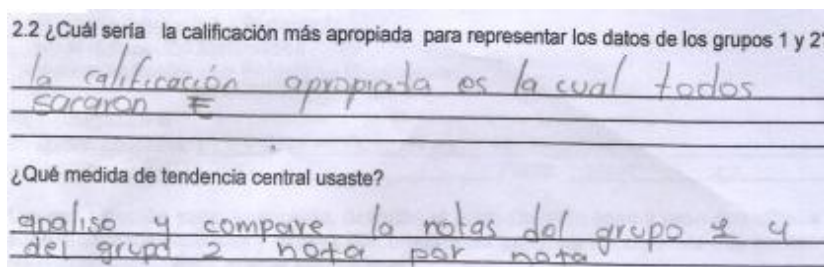 2.2 ¿Cuál sería la calificación más apropiada para representar los datos de los grupos 1 y 2?
la calificación apropiada es la cual todos
sacaron E
¿Qué medida de tendencia central usaste?
analiso y compare la notas del grupo 1 y
del grupo 2 nota por nota